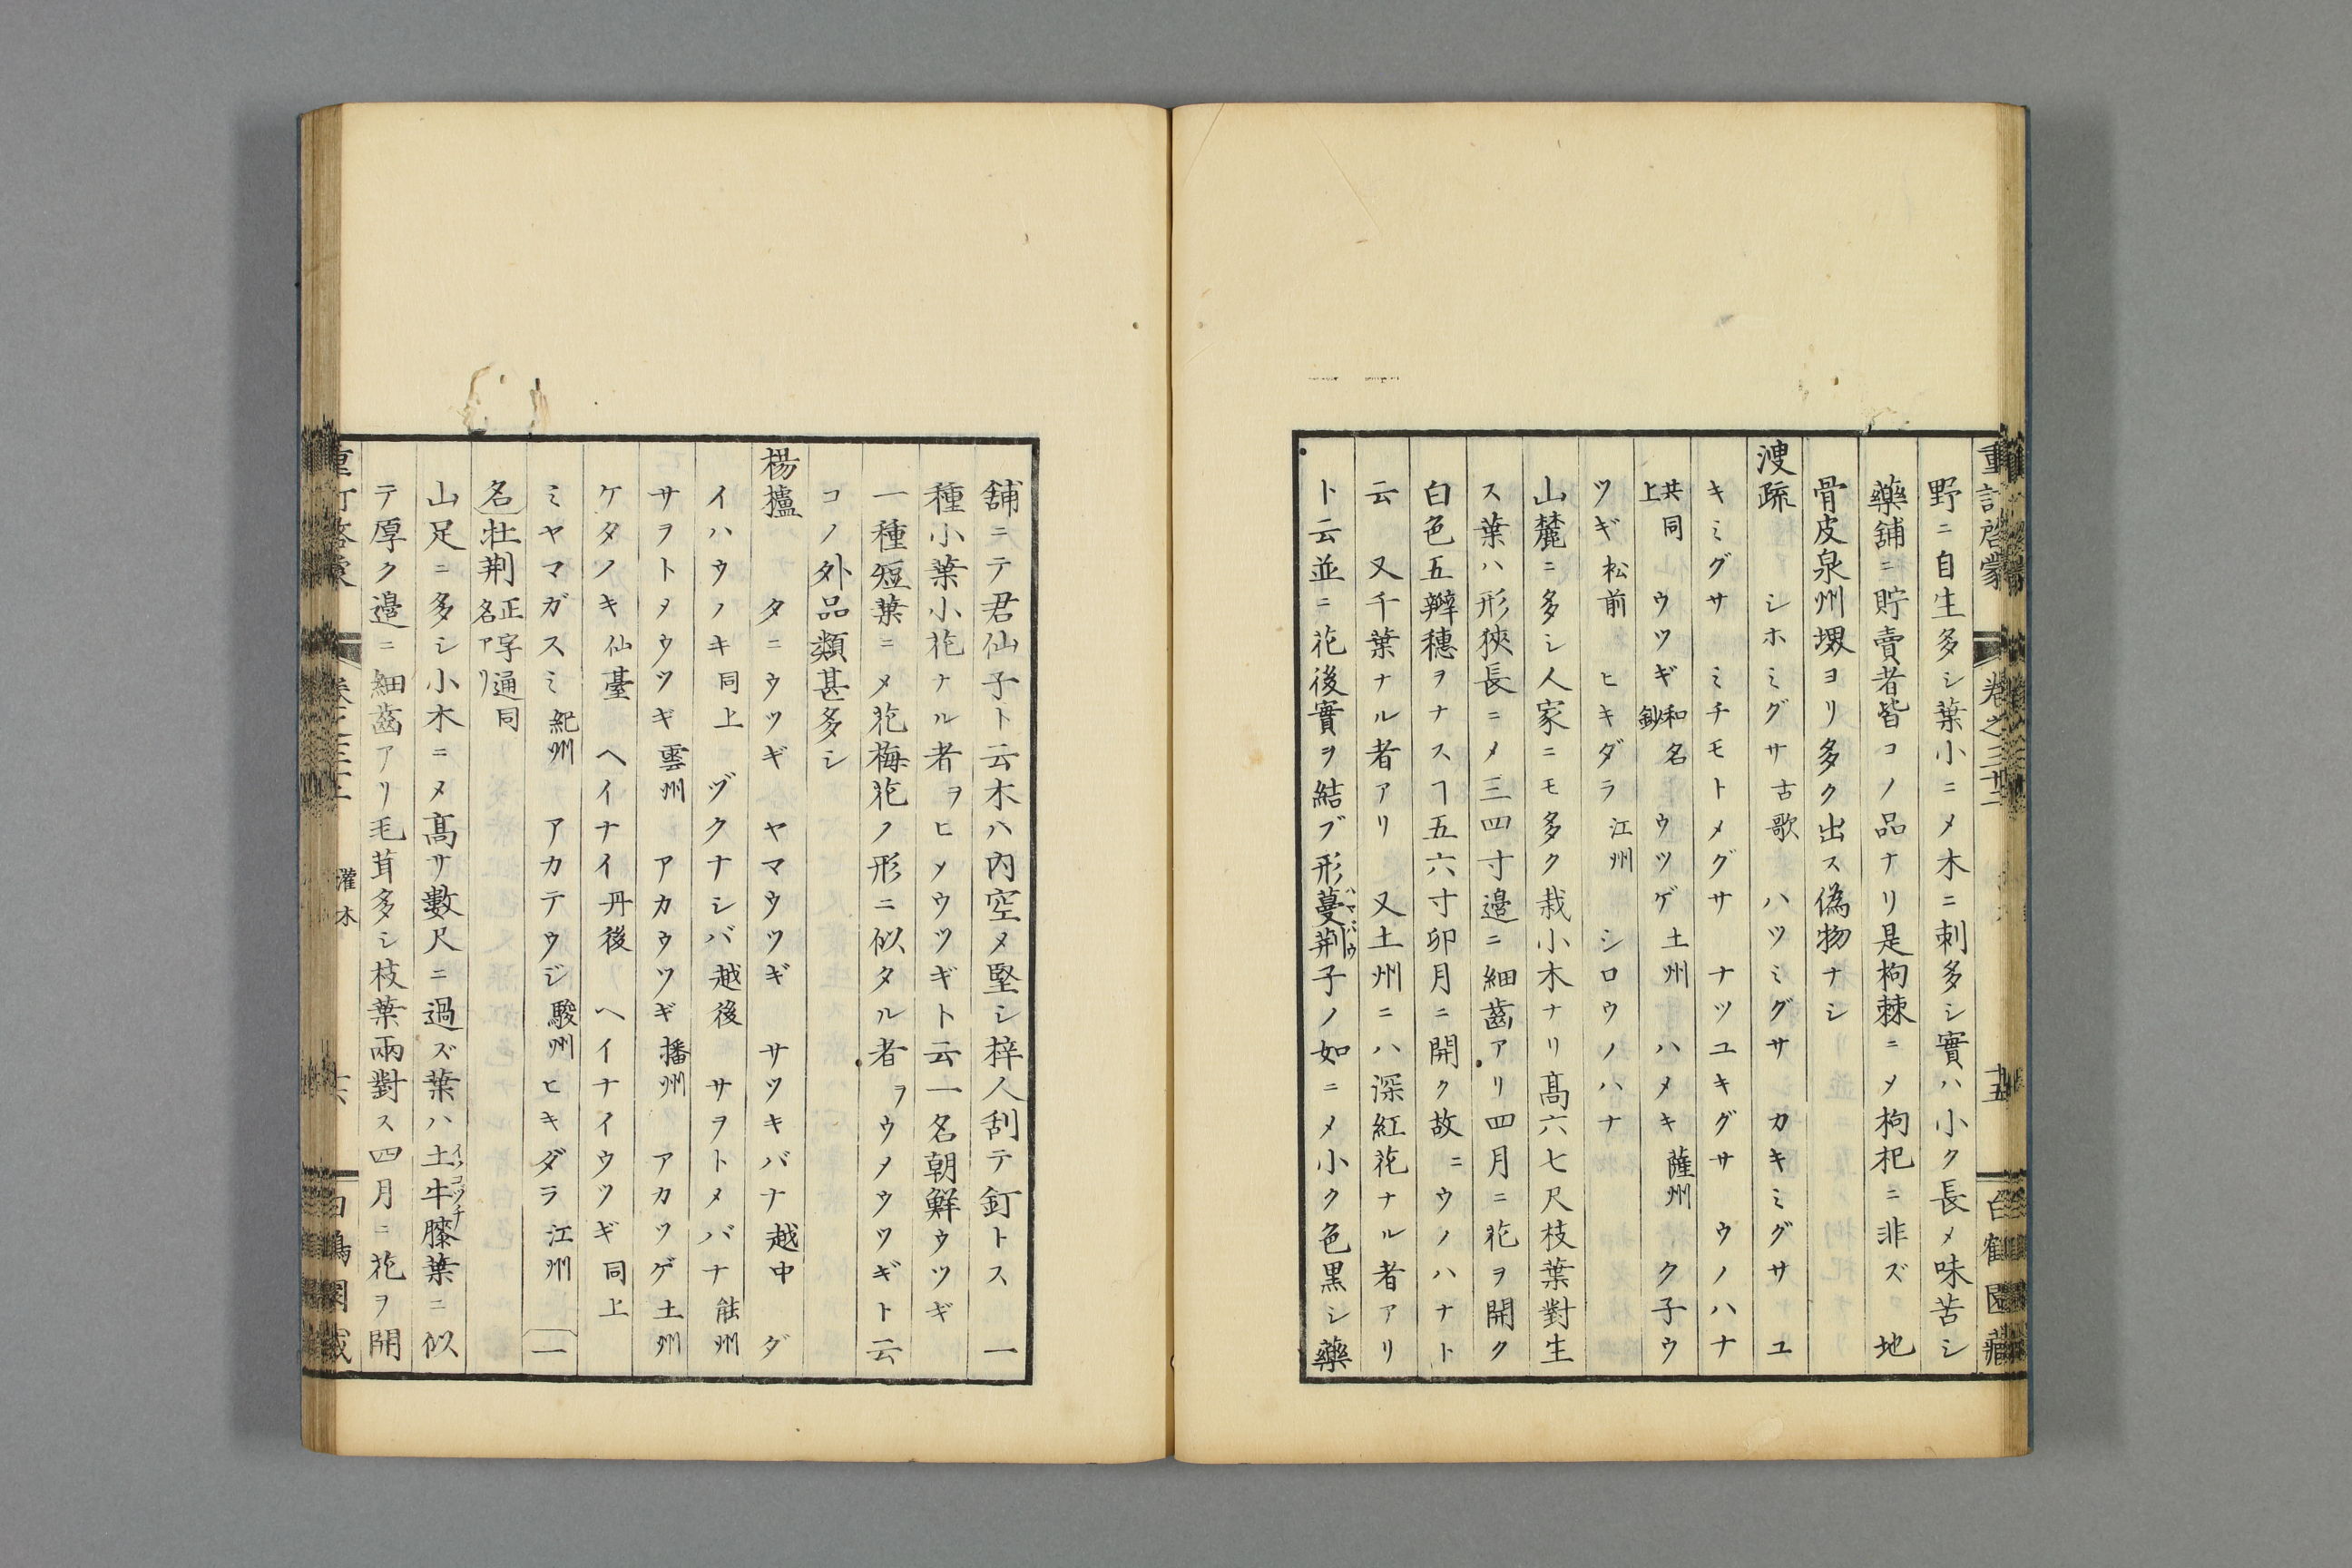 重訂啓蒙 卷之三十二 十五 白鶴園藏
野ニ自生多シ葉小ニメ木ニ刺多シ實ハ小ク長メ味苦シ
藥舖ニ貯賣者皆コノ品ナリ是枸棘ニメ枸杞ニ非ズ 地
骨皮泉州堺ヨリ多ク出ス偽物ナシ
溲疏 シホミグサ古歌 ハツミグサ カキミグサ ユ
キミグサ ミチモトメグサ ナツユキグサ ウノハナ
共同上 ウツギ和名鈔 ウツゲ土州 ハメキ薩州 ク子ウ
ツギ松前 ヒキダラ江州 シロウノハナ
山麓ニ多シ人家ニモ多ク栽小木ナリ髙六七尺枝葉對生
ス葉ハ形狹長ニメ三四寸邉ニ細齒アリ四月ニ花ヲ開ク
白色五辨穗ヲナスヿ五六寸卯月ニ開ク故ニウノハナト
云 又千葉ナル者アリ 又土州ニハ深紅花ナル者アリ
ト云並ニ花後實ヲ結ブ形蔓荆子ノ如ニメ小ク色黒シ藥
ハマバウ
舖ニテ君仙子ト云木ハ内空メ堅シ梓人刮テ釘トス 一
種小葉小花ナル者ヲヒメウツギト云一名朝鮮ウツギ
一種短葉ニメ花梅花ノ形ニ似タル者ヲウメウツギト云
コノ外品類甚多シ
楊櫨 タニウツギ ヤマウツギ サツキバナ越中 ダ
イハウノキ同上 ヅクナシバ越後 サヲトメバナ能州
サヲトメウツギ雲州 アカウツギ播州 アカツゲ土州
ケタノキ仙臺 ヘイナイ丹後 ヘイナイウツギ同上
ミヤマガスミ紀州 アカテウジ駿州 ヒキダラ江州 一
名 牡荆正字通同名アリ
山足ニ多シ小木ニメ髙サ數尺ニ過ズ葉ハ土牛膝葉ニ似
イノコツチ
テ厚ク邉ニ細齒アリ毛茸多シ枝葉兩對ス四月ニ花ヲ開
灌木